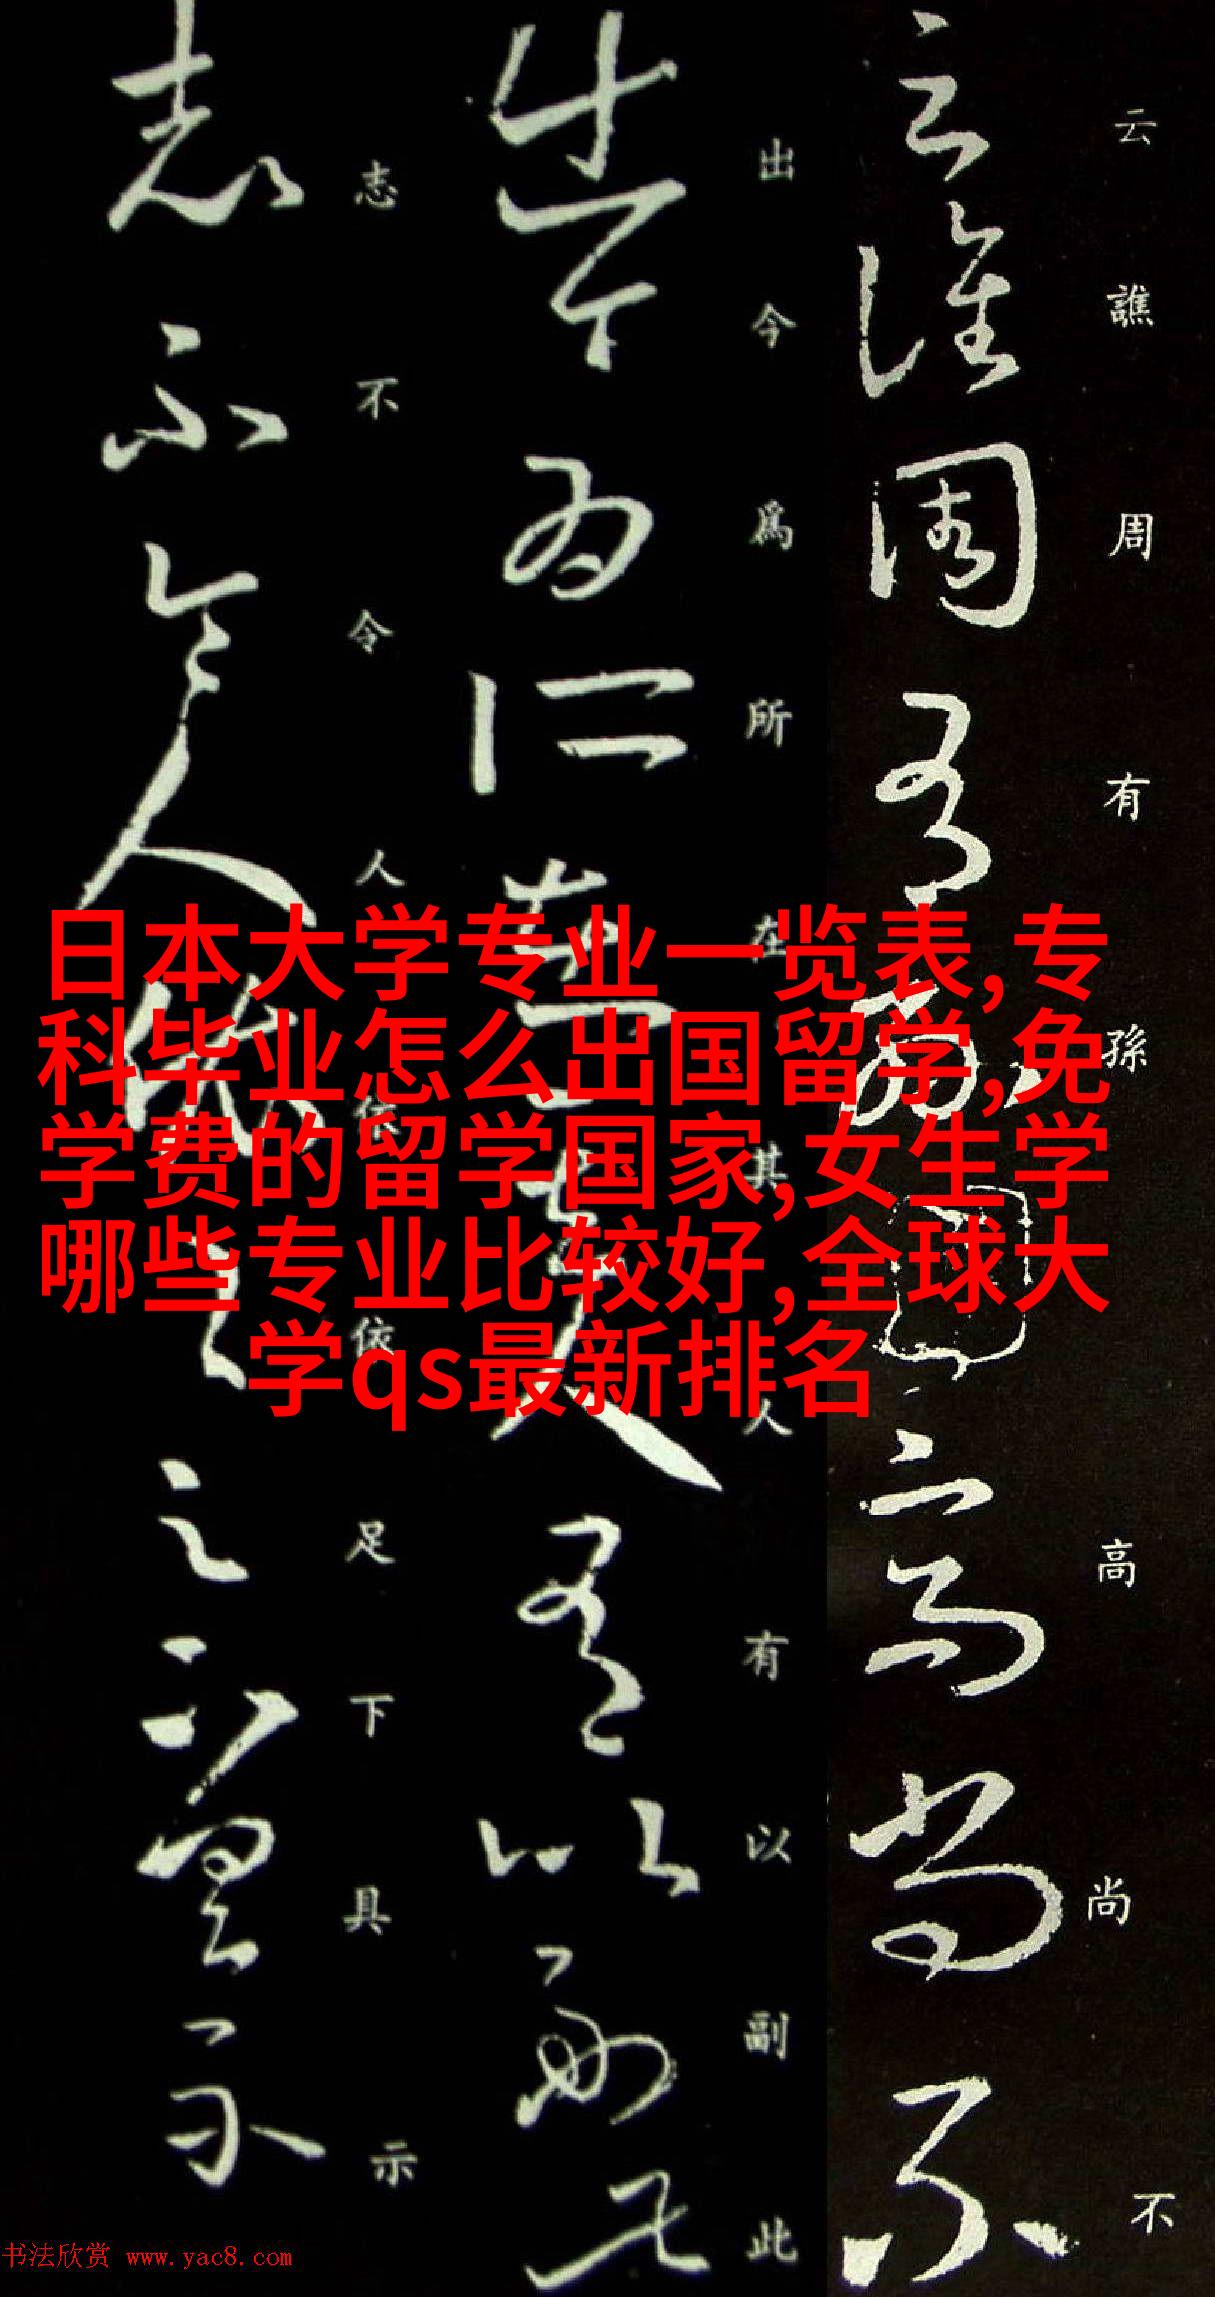 云譙周有孫高尚不
出今爲所在其人有以副此
志不令人依依足下具示
日本大学专业一览表,专
科毕业怎么出国留学,免
学费的留学国家,女生学
哪些专业比较好,全球大
学qs最新排名
书法欣赏 www.yac8.com